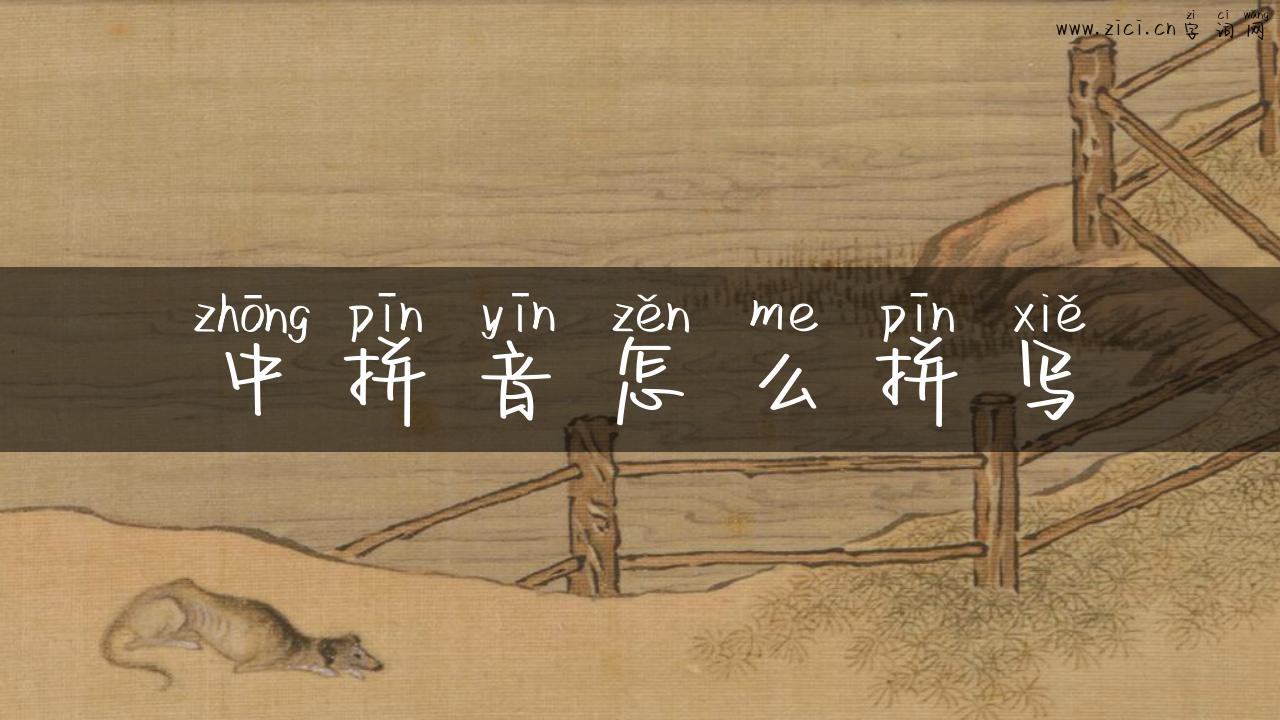 zi ci wang
www.zici.cn 字词网
zhōng pīn yīn zěn me pīn xiě
中拼音怎么拼写